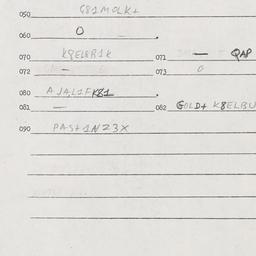 050 G81MOLK+
060 O
070 KQEL8R1K 071 — QAP
072 — 073 0
080 AJAL1FK81
081 — 082 GOLD+ K8ELBU
090 PAS+1N23X